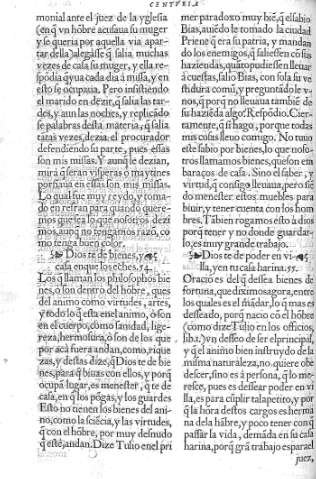 CENTVRIA
monial ante el juez de la yglesia
(en q̃ vn hõbre acusaua su muger
y se queria por aquella via apar-
tar della) alegasse q̃ salia, muchas
vezes de casa su muger, y ella res-
põdia q̃ yua cada dia a missa, y en
esto se ocupaua. Pero insistiendo
el marido en dezir, q̃ salia las tar-
des, y aun las noches, y replicãdo
se palabras desta materia, q̃ salia
tãtas vezes, dezia el procurador
defendiendo su parte, pues essas
son mis missas. Y aunq̃ le dezian,
mirà q̃ seran visperas o maytines
porna en essas son mis missas.
Lo qual fue muy reydo, y toma-
do en refran para quando quere-
mos que sea lo que nosotros dezi-
mos, aunq̃ no tengamos razõ, co
mo tenga buen color.
Dios te de bienes, y
casa en que los eches. 54.
Los q̃ llaman los philosophos bie
nes, o son dentro del hõbre, ques
del animo como virtudes, artes,
y todo lo q̃ esta enel animo, o son
en el cuerpo, como sanidad, lige-
reza, hermosura, o son de los que
por aca fuera andan, como, rique
zas, y destas dize, q̃ Dios te de bie
nes, para q̃ biuas con ellos, y porq̃
ocupã lugar, es menester, q̃ te de
casa, en q̃ los põgas, y los guardes
Esto no tienen los bienes del ani-
mo, como la sciẽcia, y las virtudes,
q̃ con el hõbre, por muy desnudo
q̃ estè, andan. Dize Tulio enel pri
mer paradoxo muy biẽ, q̃ el sabio
Bias, auiẽdo le tomado la ciudad
Priene q̃ era su patria, y mandan
do los enemigos, q̃ saliessen cõ sus
haziendas, quãto pudiessen lleuar
a cuestas, salio Bias, con sola su ve
stidura comũ, y preguntãdo le v-
nos, q̃ porq̃ no lleuaua tambiẽ de
su haziẽda algo? Respõdio. Cier-
ramente, q̃ si hago, porque todas
mis cosas lleuo comigo. No tuuo
este sabio por bienes, lo que noso-
tros llamamos bienes, que son em
baraços de casa. Sino el saber, y
virtud, q̃ consigo lleuaua, pero siẽ
do menester estos muebles para
biuir, y tener cuenta con los hom
bres. Tãbien rogamos esto a dios
porq̃ tener y no donde guardar-
lo, es muy grande trabajo.
Dios te de poder en vi-
lla, y en tu casa harina. 55.
Oraciõ es del q̃ dessea bienes de
fortuna, que diximos agora, entre
los quales es el mãdar, lo q̃ mas es
desseado, porq̃ nacio cõ el hõbre
(como dize Tulio en los officios,
lib. 1.) vn desseo de ser el principal,
y q̃ el animo bien instruydo de la
misma naturaleza, no quiere obe
descer, sino es a persona, q̃ lo me-
resce, pues es dessear poder en vi
lla, es para cũplir tal apetito, y por
q̃ la hõra destos cargos es hermã
na dela hãbre, y poco tener con q̃
passar la vida, demãda en su casa
harina, porq̃ grã trabajo espara el
juez,